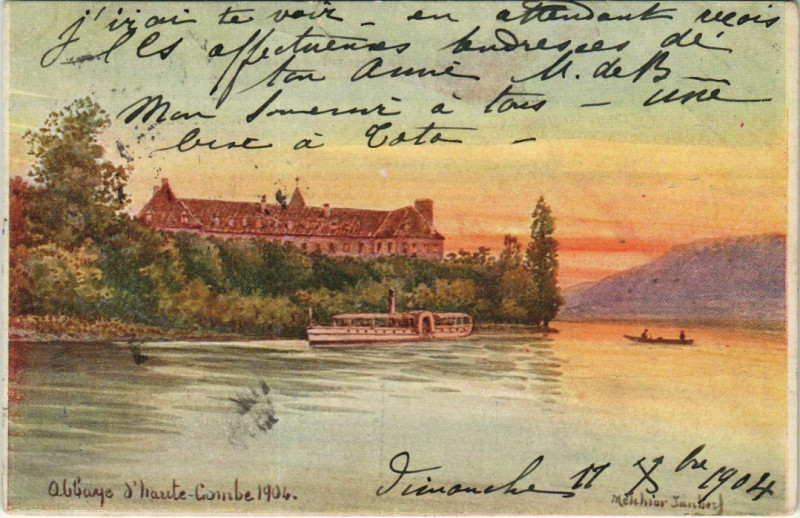 j'irai te voir – en attendant reçois
les affectueuses tendresses de
ton Anné M. de B
Mon Souvenir à tous – une
bise à Toto –
Abbaye d'haute-Combe 1904.
Dimanche 11 bre 1904
Melchior Jaubert